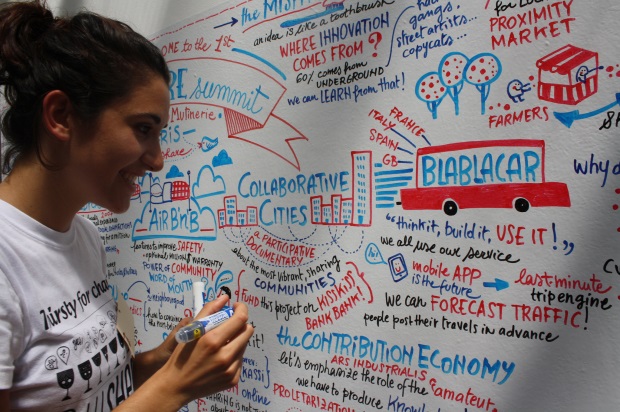 the
an idea is like a toothbrush
WHERE INNOVATION
COMES FROM?
60% comes from
UNDERGROUND
we can LEARN from that!
gangs,
street artists...
copycats...
PROXIMITY
MARKET
FARMERS
OME to the 1st
RE summit
Mutinerie
share
AIRBNB
features to improve SAFETY
optional EMISSIONS WARRANTY
POWER of COMMUNITY
WORD of
MOUTH
COLLABORATIVE
CITIES
a PARTICIPATIVE
DOCUMENTARY
about the most vibrant, sharing
COMMUNITIES
FUND this project on KISSKISS
BANK BANK!
FRANCE
ITALY
SPAIN
GB
BLABLACAR
"think it, build it, USE IT!"
we all use our service
mobile APP
is the future
last minute
trip engine
we can FORECAST TRAFFIC!
people post their travels in advance
why
the CONTRIBUTION ECONOMY
ARS INDUSTRIALIS
let's emphasize the role of the "amateur
PROLETARIZATION
we have to produce
online
Thirsty for cha